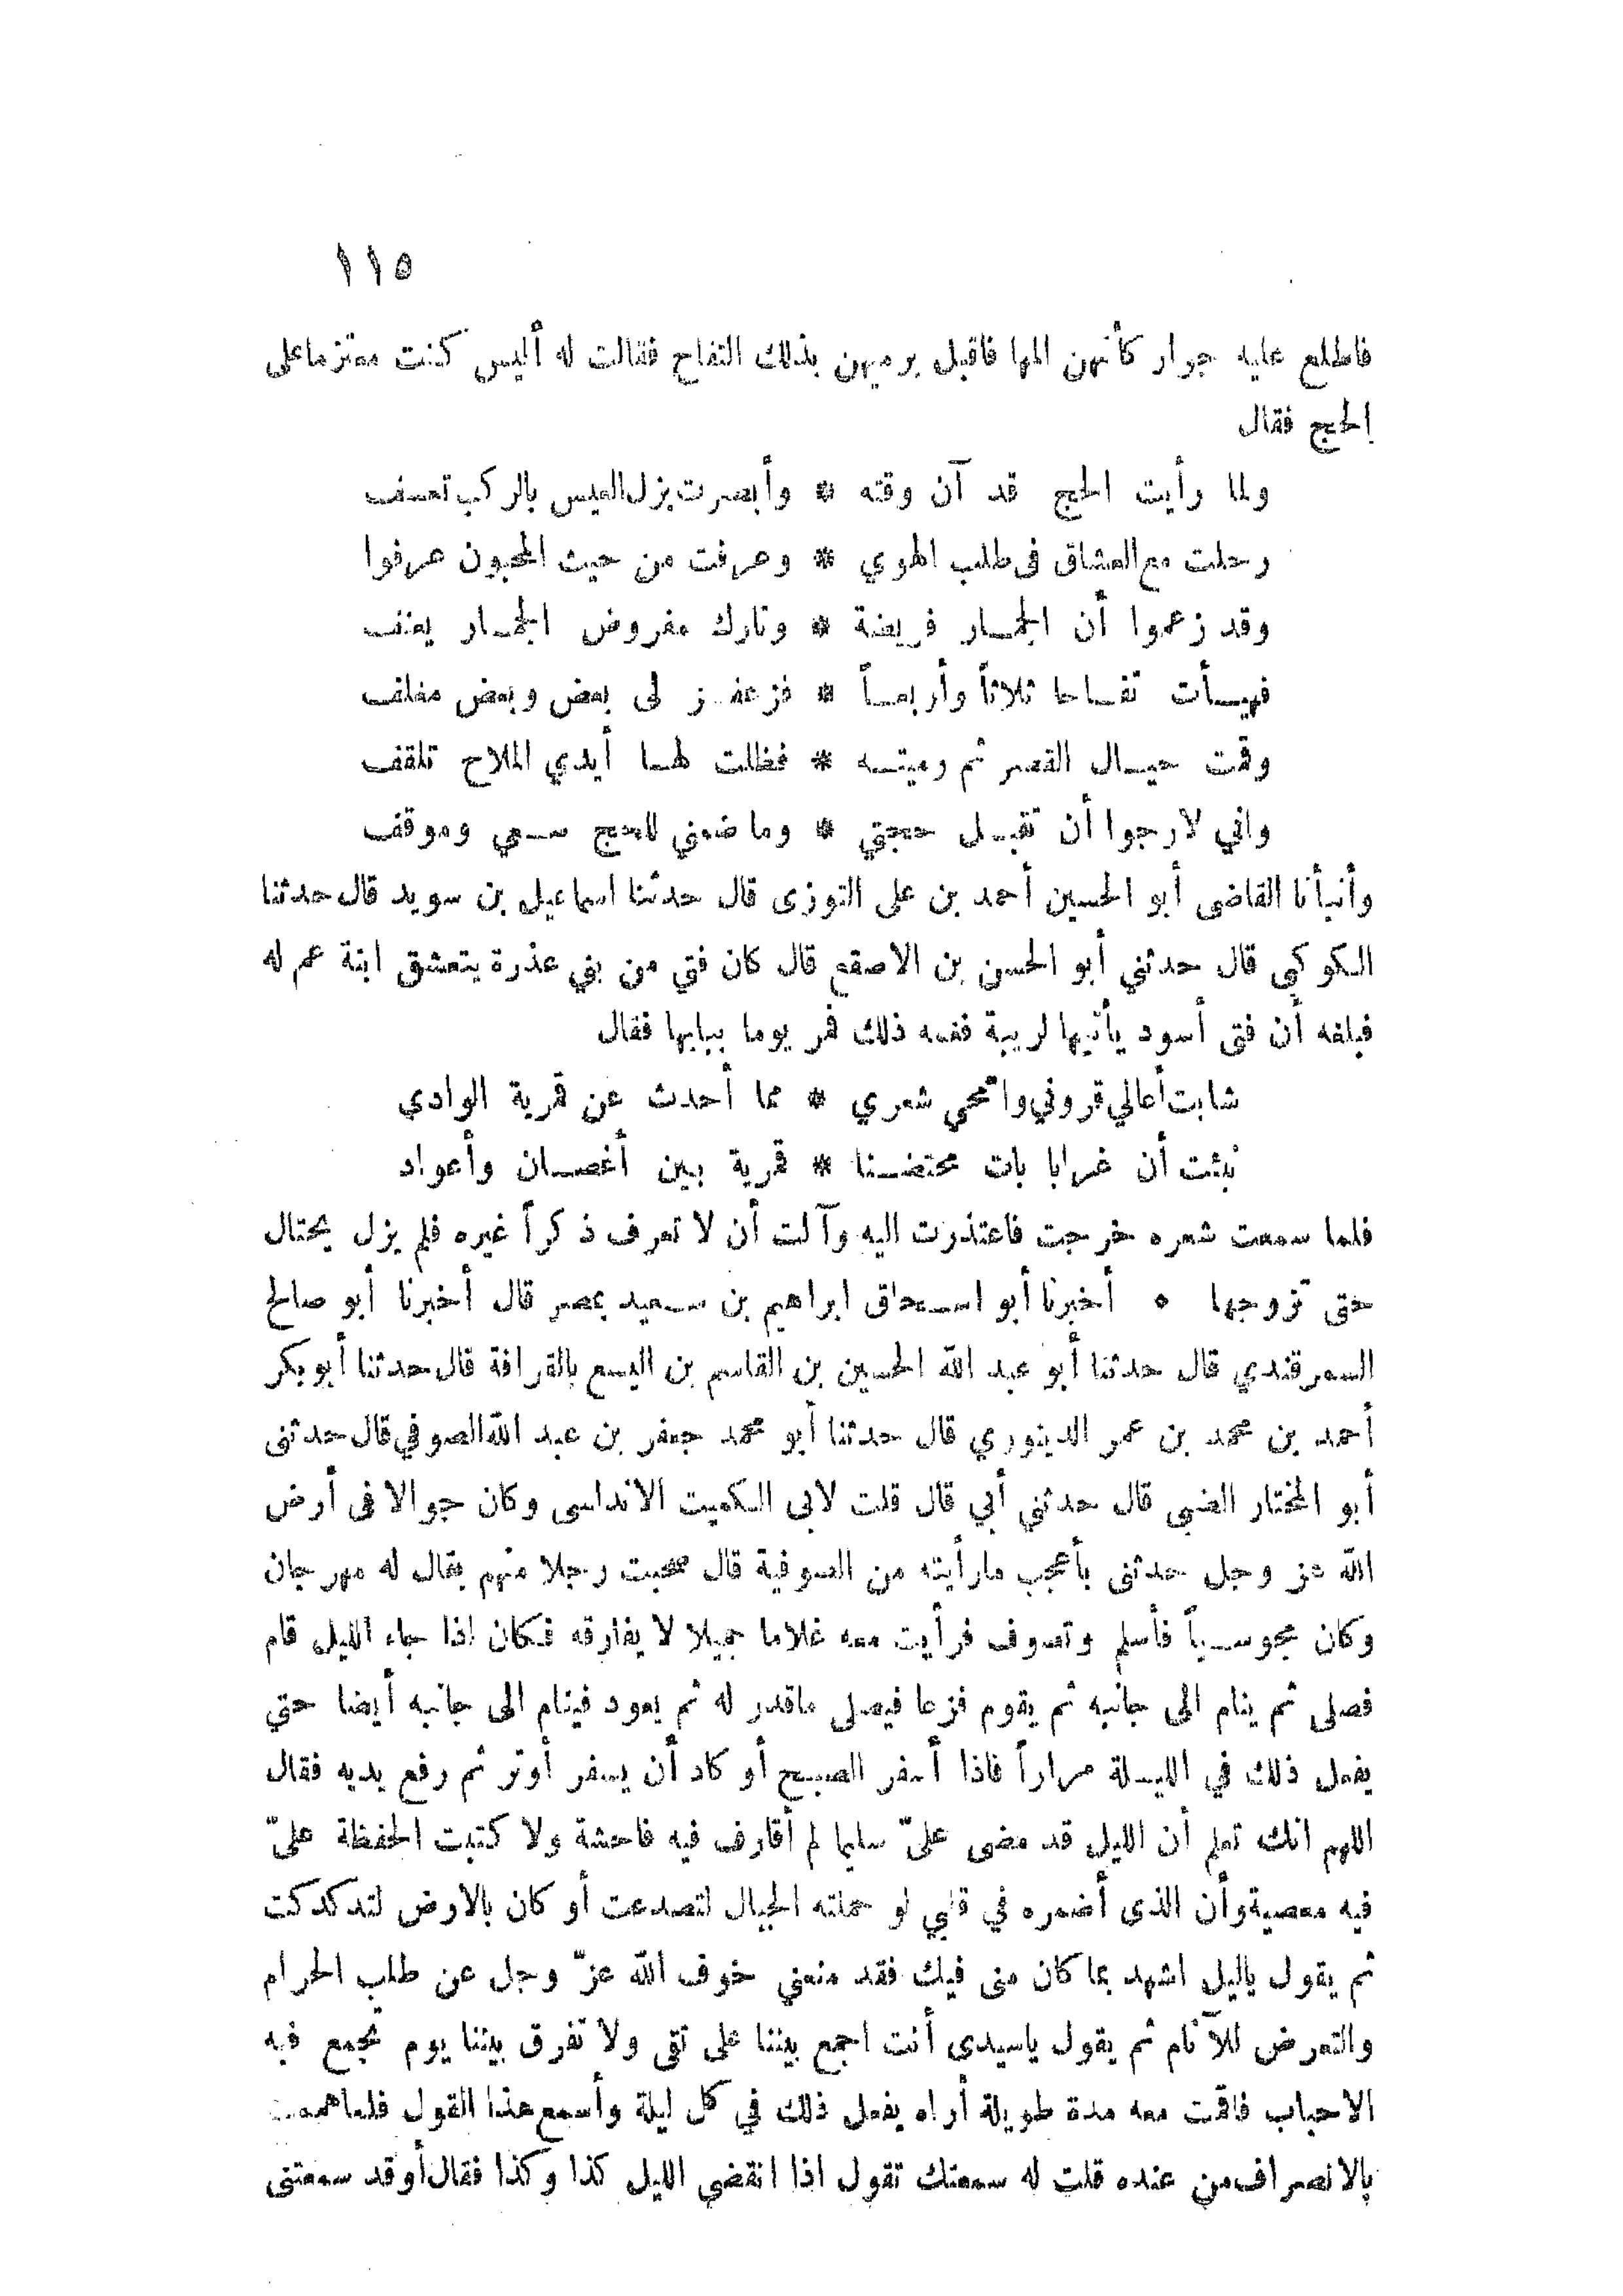 ١١٥
فاطلع عليه جوار كأنهن المها فاقبل يرميهن بذلك التفاح فقالت له أليس كنت معتزما على
الحج فقال
ولما رأيت الحج قد آن وقته * وأبصرت بزل العيس بالركب تعسف
رحلت مع العشاق فى طلب الهوي * وعرفت من حيث المحبون عرفوا
وقد زعموا أن الجمار فريضة * وتارك مفروض الجمار يعنف
فهيأت تفاحا ثلاثاً وأربعاً * فزعفر لى بعض وبعض مغلف
وقمت حيال القصر ثم رميته * فظلت لها أيدي الملاح تلقف
واني لارجوا أن تقبل حجتي * وما ضمني للحج سعي وموقف
وأنبأنا القاضى أبو الحسين أحمد بن على التوزى قال حدثنا اسماعيل بن سويد قال حدثنا
الكوكبى قال حدثني أبو الحسن بن الاصقع قال كان فتي من بني عذرة يتعشق ابنة عم له
فبلغه أن فتى أسود يأتيها لريبة فغمه ذلك فمر يوما ببابها فقال
شابت أعالي قروني وامحي شعري * مما أحدث عن قمرية الوادي
نبئت أن غرابا بات محتضنا * قمرية بين أغصان وأعواد
فلما سمعت شعره خرجت فاعتذرت اليه وآلت أن لا تعرف ذكراً غيره فلم يزل يحتال
حتى تزوجها ٠ أخبرنا أبو اسحاق ابراهيم بن سعيد بمصر قال أخبرنا أبو صالح
السمرقندي قال حدثنا أبو عبد الله الحسين بن القاسم بن اليسع بالقرافة قال حدثنا أبو بكر
أحمد بن محمد بن عمر الدينوري قال حدثنا أبو محمد جعفر بن عبد الله الصوفي قال حدثنى
أبو المختار الضبى قال حدثني أبي قال قلت لابى الكميت الاندلسى وكان جوالا فى أرض
الله عز وجل حدثنى بأعجب مارأيته من الصوفية قال صحبت رجلا منهم يقال له مهرجان
وكان مجوسياً فأسلم وتصوف فرأيت معه غلاما جميلا لا يفارقه فكان اذا جاء الليل قام
فصلى ثم ينام الى جانبه ثم يقوم فزعا فيصلى ماقدر له ثم يعود فينام الى جانبه أيضا حتي
يفعل ذلك في الليلة مراراً فاذا أسفر الصبح أو كاد أن يسفر أوتر ثم رفع يديه فقال
اللهم انك تعلم أن الليل قد مضى علىّ سليما لم أقارف فيه فاحشة ولا كتبت الحفظة علىّ
فيه معصية وأن الذى أضمره في قلبي لو حملته الجبال لتصدعت أو كان بالارض لتدكدكت
ثم يقول ياليل اشهد بما كان منى فيك فقد منعني خوف الله عزّ وجل عن طلب الحرام
والتعرض للآثام ثم يقول ياسيدى أنت اجمع بيننا على تقى ولا تفرق بيننا يوم تجمع فيه
الاحباب فاقمت معه مدة طويلة أراه يفعل ذلك في كل ليلة وأسمع هذا القول فلما هممت
بالانصراف من عنده قلت له سمعتك تقول اذا انقضي الليل كذا وكذا فقال أوقد سمعتنى